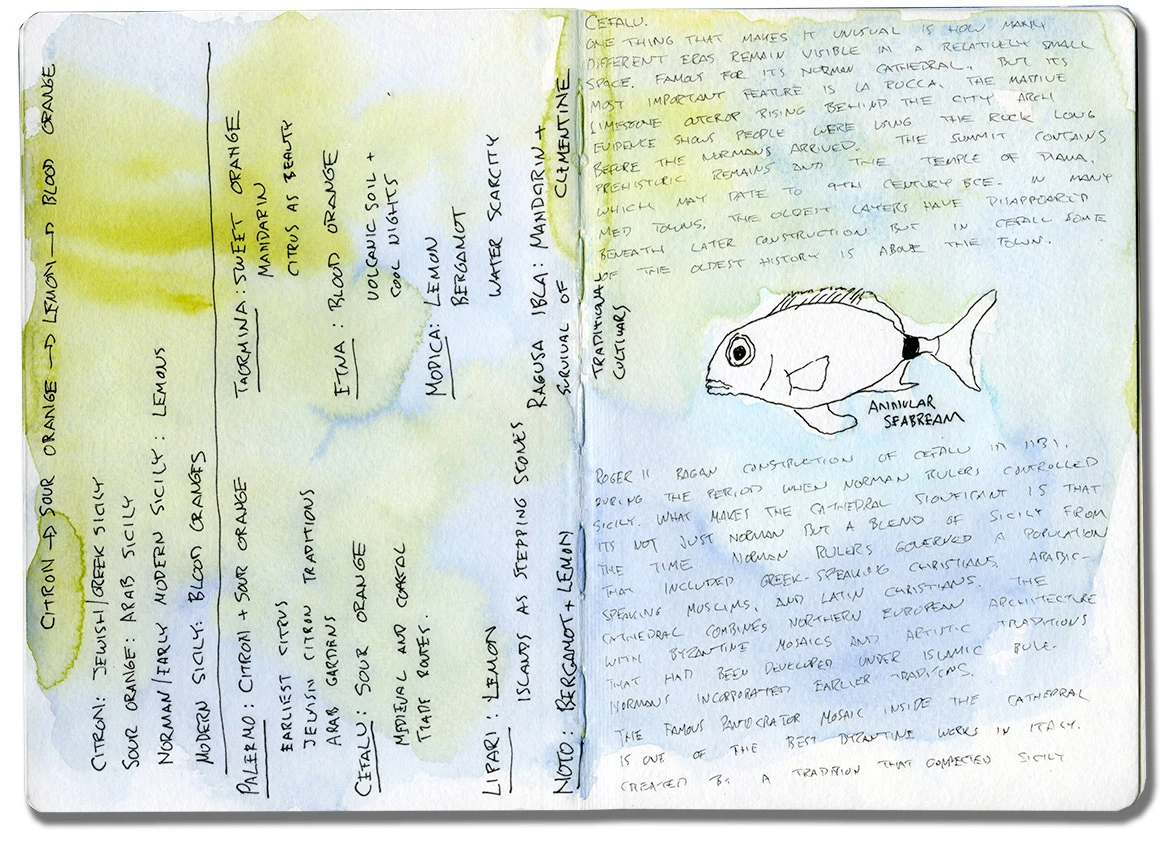 CITRON → SOUR ORANGE → LEMON → BLOOD ORANGE
CITRON: JEWISH/GREEK SICILY
SOUR ORANGE: ARAB SICILY
NORMAN/EARLY MODERN SICILY: LEMONS
MODERN SICILY: BLOOD ORANGES
PALERMO: CITRON + SOUR ORANGE
EARLIEST CITRUS
JEWISH CITRON TRADITIONS
ARAB GARDENS
CEFALU: SOUR ORANGE
MEDIEVAL AND COASTAL
TRADE ROUTES.
LIPARI: LEMON
ISLANDS AS STEPPING STONES
NOTO: BERGAMOT + LEMON
TAORMINA: SWEET ORANGE
MANDARIN
CITRUS AS BEAUTY
ETNA: BLOOD ORANGE
VOLCANIC SOIL +
COOL NIGHTS
MODICA: LEMON
BERGAMOT
WATER SCARCITY
RAGUSA IBLA: MANDARIN +
CLEMENTINE
SURVIVAL OF
TRADITIONAL
CULTIVARS
CEFALU.
ONE THING THAT MAKES IT UNUSUAL IS HOW MANY
DIFFERENT ERAS REMAIN VISIBLE IN A RELATIVELY SMALL
SPACE. FAMOUS FOR ITS NORMAN CATHEDRAL, BUT ITS
MOST IMPORTANT FEATURE IS LA ROCCA, THE MASSIVE
LIMESTONE OUTCROP RISING BEHIND THE CITY ARCH
EVIDENCE SHOWS PEOPLE WERE USING THE ROCK LONG
BEFORE THE NORMANS ARRIVED. THE SUMMIT CONTAINS
PREHISTORIC REMAINS AND THE TEMPLE OF DIANA,
WHICH MAY DATE TO 9TH CENTURY BCE. IN MANY
MED TOWNS, THE OLDEST LAYERS HAVE DISAPPEARED
BENEATH LATER CONSTRUCTION BUT IN CEFALU SOME
OF THE OLDEST HISTORY IS ABOVE THE TOWN.
ANNULAR
SEABREAM
ROGER II BAGAN CONSTRUCTION OF CEFALU IN 1131,
DURING THE PERIOD WHEN NORMAN RULERS CONTROLLED
SICILY. WHAT MAKES THE CATHEDRAL SIGNIFICANT IS THAT
ITS NOT JUST NORMAN BUT A BLEND OF SICILY FROM
THE TIME. NORMAN RULERS GOVERNED A POPULATION
THAT INCLUDED GREEK-SPEAKING CHRISTIANS, ARABIC-
SPEAKING MUSLIMS, AND LATIN CHRISTIANS. THE
CATHEDRAL COMBINES NORTHERN EUROPEAN ARCHITECTURE
WITH BYZANTINE MOSAICS AND ARTISTIC TRADITIONS
THAT HAD BEEN DEVELOPED UNDER ISLAMIC RULE.
NORMANS INCORPORATED EARLIER TRADITIONS.
THE FAMOUS PANTOCRATOR MOSAIC INSIDE THE CATHEDRAL
IS ONE OF THE BEST BYZANTINE WORKS IN ITALY.
CREATED BY A TRADITION THAT CONNECTED SICILY